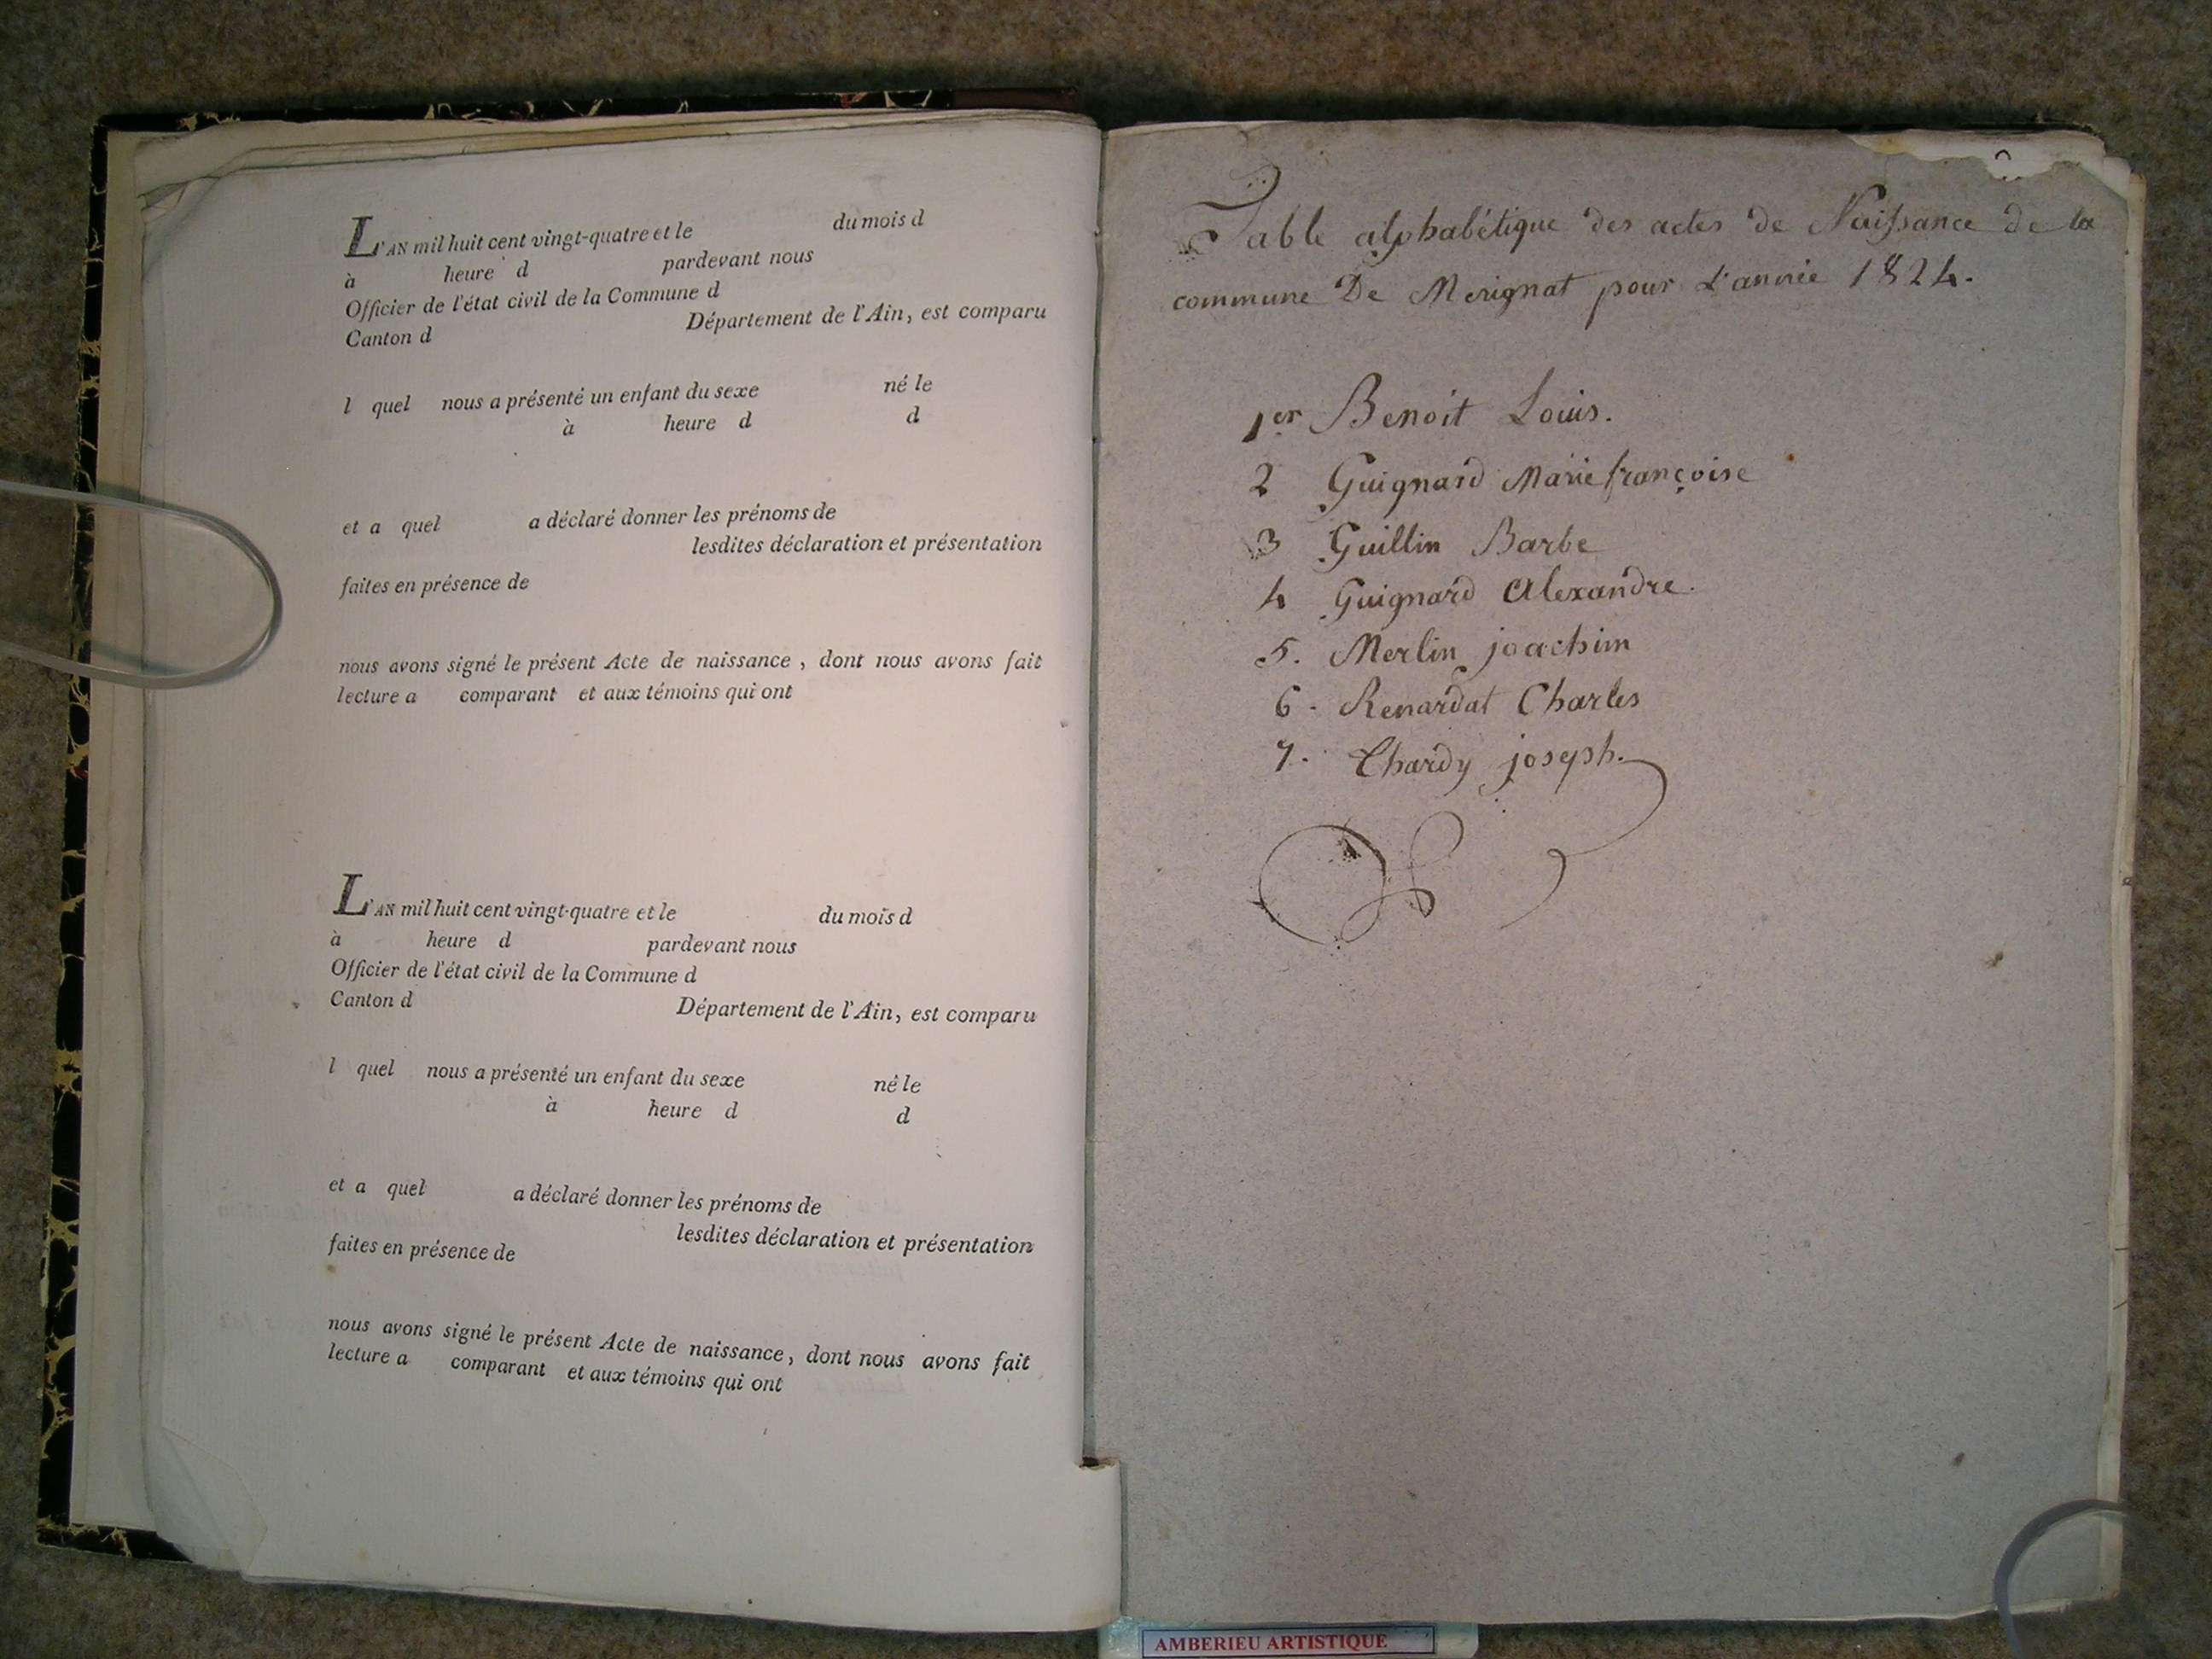 L'AN mil huit cent vingt-quatre et le du mois d
à heure d pardevant nous
Officier de l'état civil de la Commune d
Canton d Département de l'Ain, est comparu
l quel nous a présenté un enfant du sexe né le
à heure d d
et a quel a déclaré donner les prénoms de
lesdites déclaration et présentation
faites en présence de
nous avons signé le présent Acte de naissance, dont nous avons fait
lecture a comparant et aux témoins qui ont
L'AN mil huit cent vingt-quatre et le du mois d
à heure d pardevant nous
Officier de l'état civil de la Commune d
Canton d Département de l'Ain, est comparu
l quel nous a présenté un enfant du sexe né le
à heure d d
et a quel a déclaré donner les prénoms de
lesdites déclaration et présentation
faites en présence de
nous avons signé le présent Acte de naissance, dont nous avons fait
lecture a comparant et aux témoins qui ont
Table alphabétique des actes de Naissance de la
commune De Merignat pour L'année 1824.
1er Benoit Louis.
2 Guignard Marie françoise
3 Guillin Barbe
4 Guignard Alexandre.
5. Merlin joachim
6. Renardat Charles
7. Chardy joseph.
AMBERIEU ARTISTIQUE